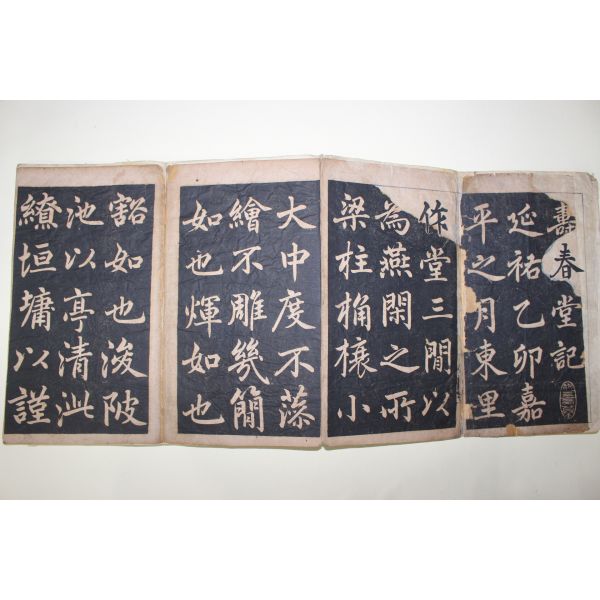 壽春堂記
延祐乙卯嘉
平之月東里
作堂三閒以
為燕閑之所
梁柱桷榱小
大中度不藻
繪不雕幾簡
如也煇如也
豁如也浚陂
池以亭清泚
繚垣墉以謹